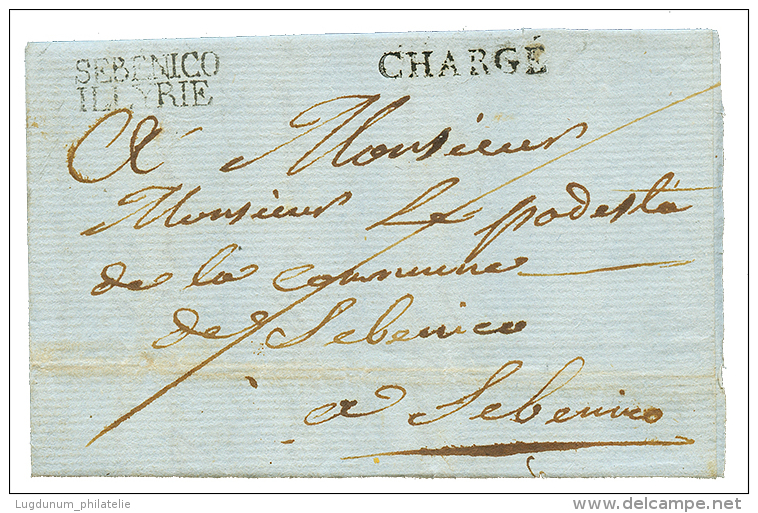 SEBENICO
ILLYRIE
CHARGÉ
A Monsieur
Monsieur Le podestá
de la commune
de Sebenico
a Sebenico
Lugdunum_philatelie
delcampe.net